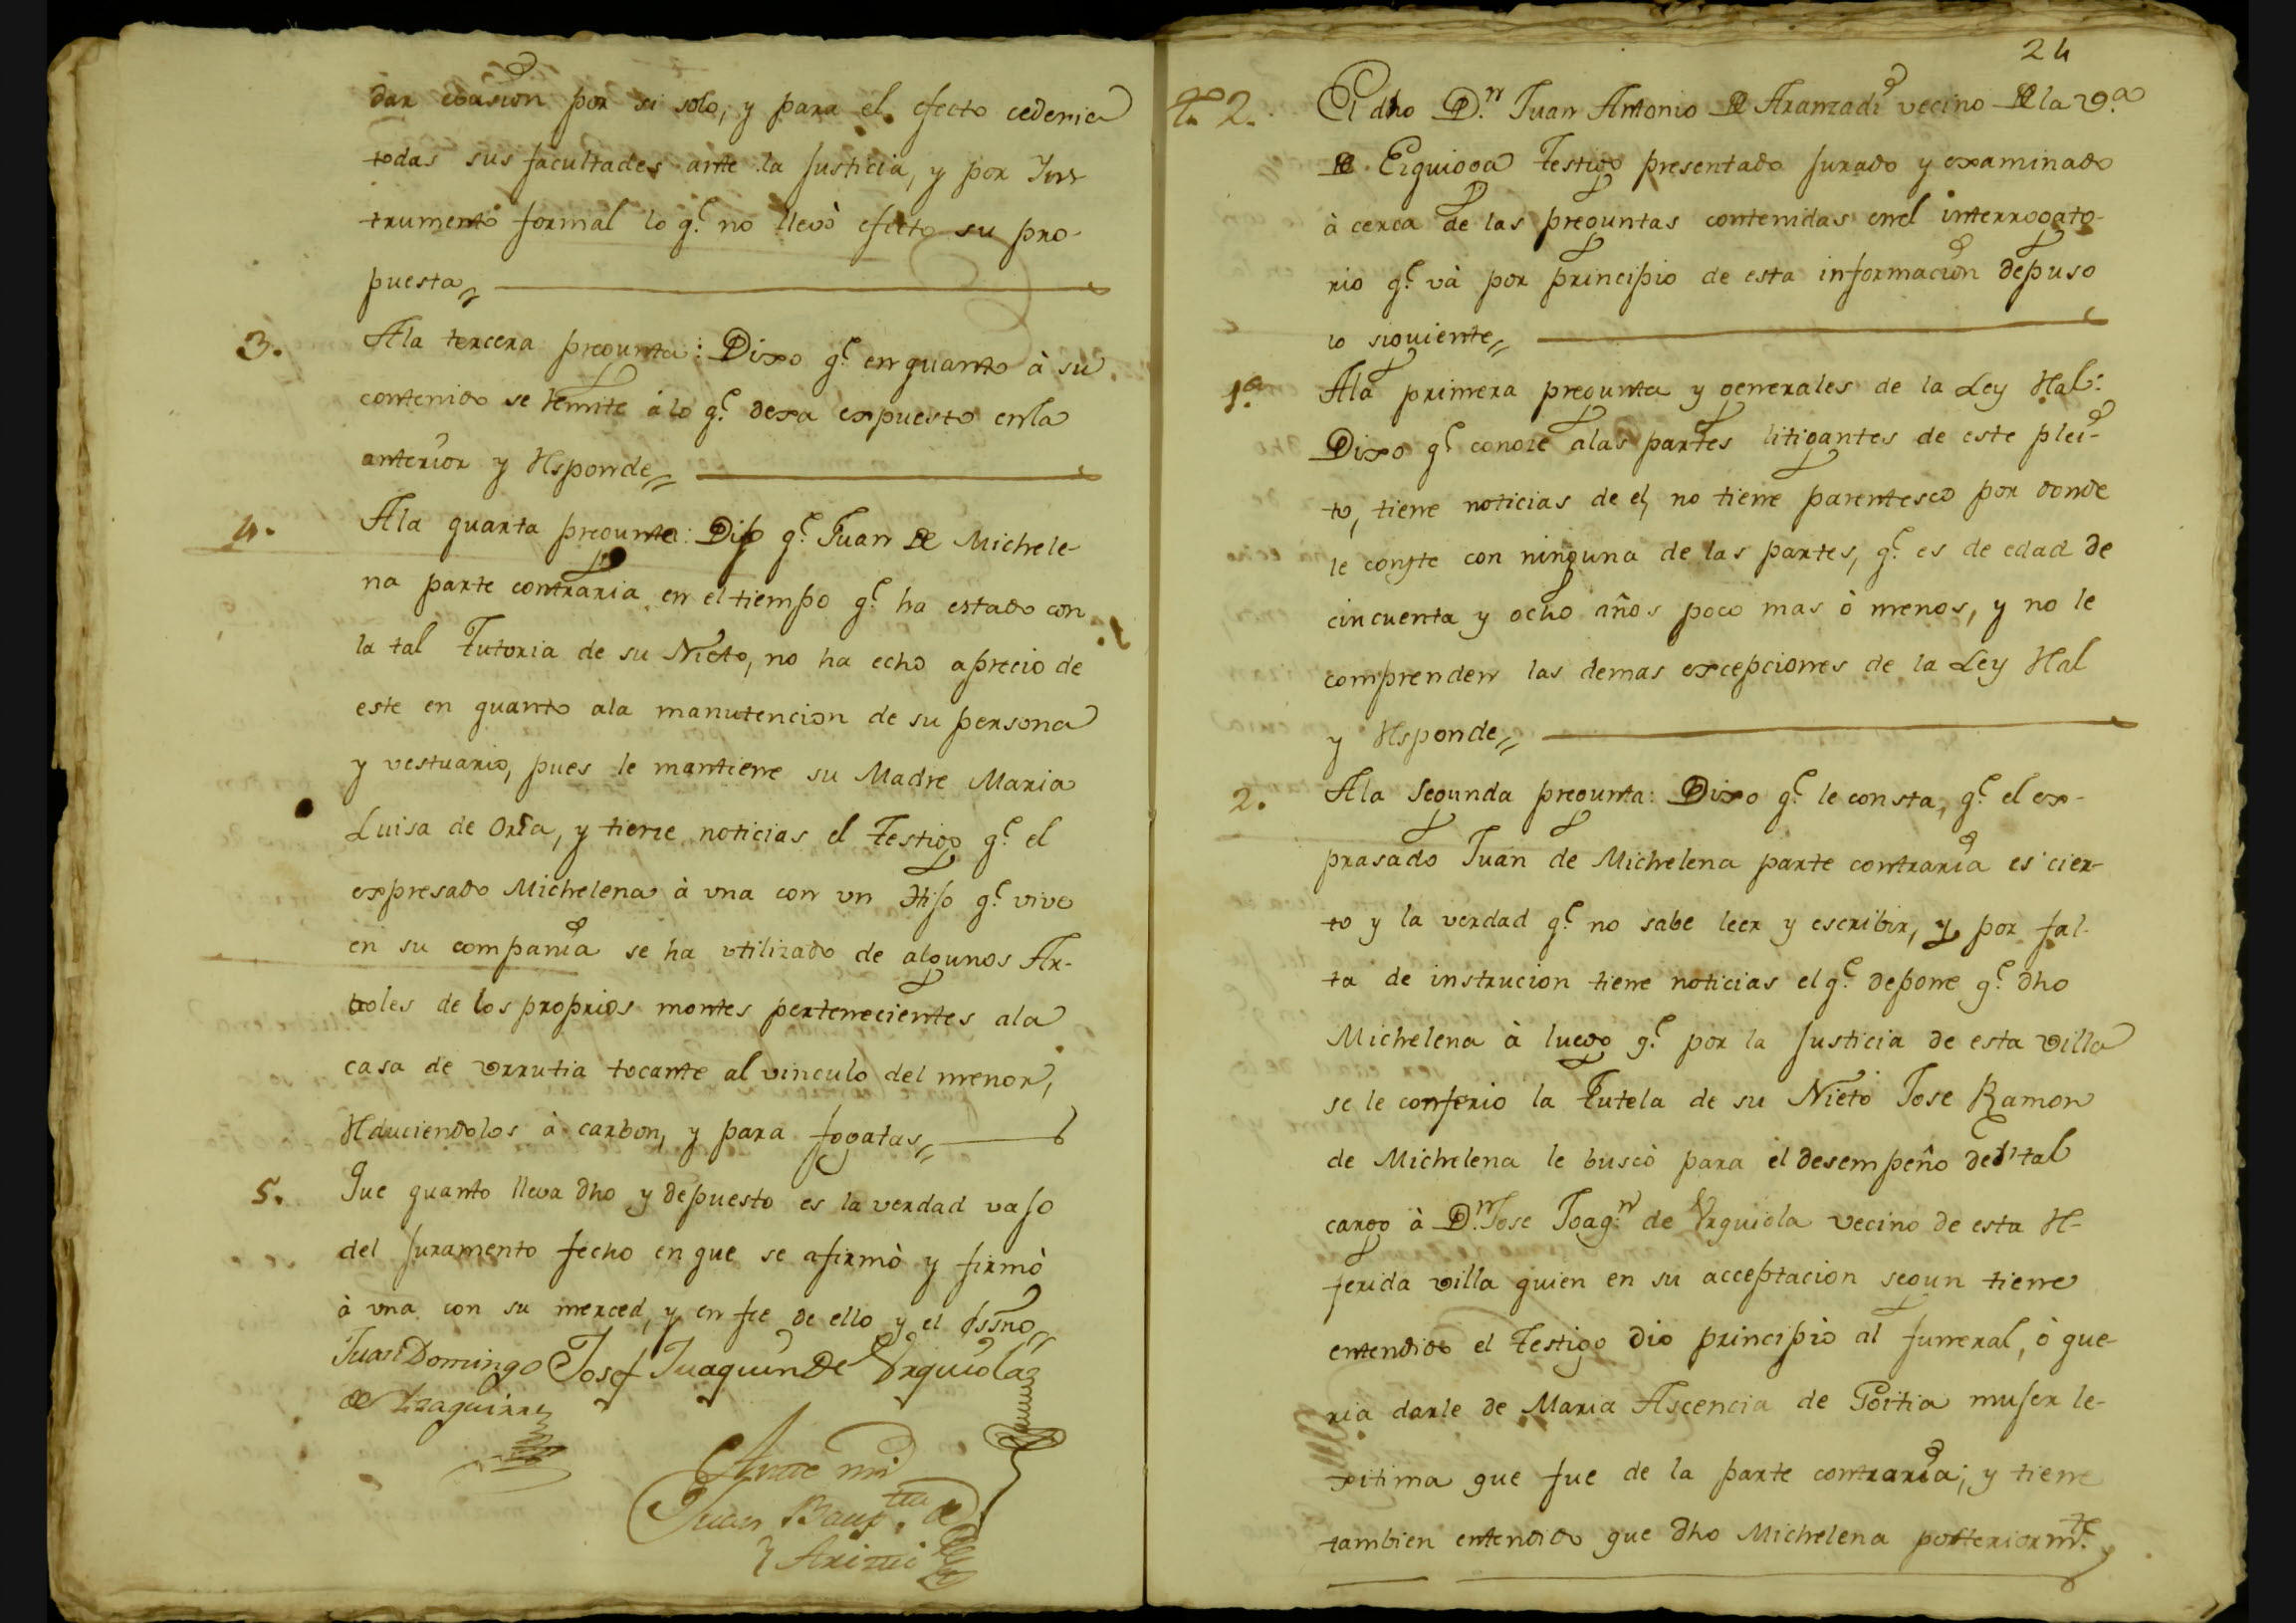 dar evasion por si solo, y para el efecto cederia
todas sus facultades ante la Justicia, y por Ins
trumento formal lo q.e no llevò efecto su pro-
puesta,,
3. Ala tercera pregunta: Dixo q.e en quanto à su
contenido se Remite à lo q.e dexa expuesto en la
anterior y Responde,,
4. Ala quarta pregunta: Dijo q.e Juan de Michele-
na parte contraria en el tiempo q.e ha estado con
la tal Tutoria de su Nieto, no ha echo aprecio de
este en quanto ala manutencion de su persona
y vestuario, pues le mantiene su Madre Maria
Luisa de Oria, y tiene noticias el Testigo q.e el
expresado Michelena à vna con vn Hijo q.e vive
en su compania se ha vtilizado de algunos Ar-
boles de los proprios montes pertenecientes ala
casa de Vrrutia tocante al vinculo del menor,
Reduciendolos à carbon, y para fogatas,,
5. Que quanto lleva dho y depuesto es la verdad vajo
del Juramento fecho en que se afirmò y firmò
à vna con su merced, y en fee de ello y el Essno,,
Juan Domingo Josef Juaquin De Vrquiola
de Yzaguirre
Ante mi
Juan Baup.ta de
Arizti
24
T.o 2. El dho D.n Juan Antonio de Aranzadi vecino de la V.a
de Ezquioga Testigo presentado Jurado y examinado
à cerca de las preguntas contenidas en el interrogato-
rio q.e và por principio de esta informacion depuso
lo siguiente,,
1.a Ala primera pregunta y generales de la Ley Real:
Dixo q.e conoze alas partes litigantes de este plei-
to, tiene noticias de el, no tiene parentesco por donde
le conste con ninguna de las partes, q.e es de edad de
cincuenta y ocho años poco mas ò menos, y no le
comprenden las demas excepciones de la Ley Real
y Responde,,
2. Ala Segunda pregunta: Dixo q.e le consta, q.e el ex-
prasado Juan de Michelena parte contraria es cier-
to y la verdad q.e no sabe leer y escribir, y por fal-
ta de instrucion tiene noticias el q.e depone q.e dho
Michelena à luego q.e por la Justicia de esta villa
se le conferio la Tutela de su Nieto Jose Ramon
de Michelena le buscò para el desempeño del tal
cargo à D.n Jose Joaq.n de Vrquiola vecino de esta Re-
ferida villa quien en su acceptacion segun tiene
entendido el Testigo dio principio al funeral, ò que-
ria darle de Maria Ascencia de Goitia mujer le-
xitima que fue de la parte contraria; y tiene
tambien entendido que dho Michelena posteriorm.te